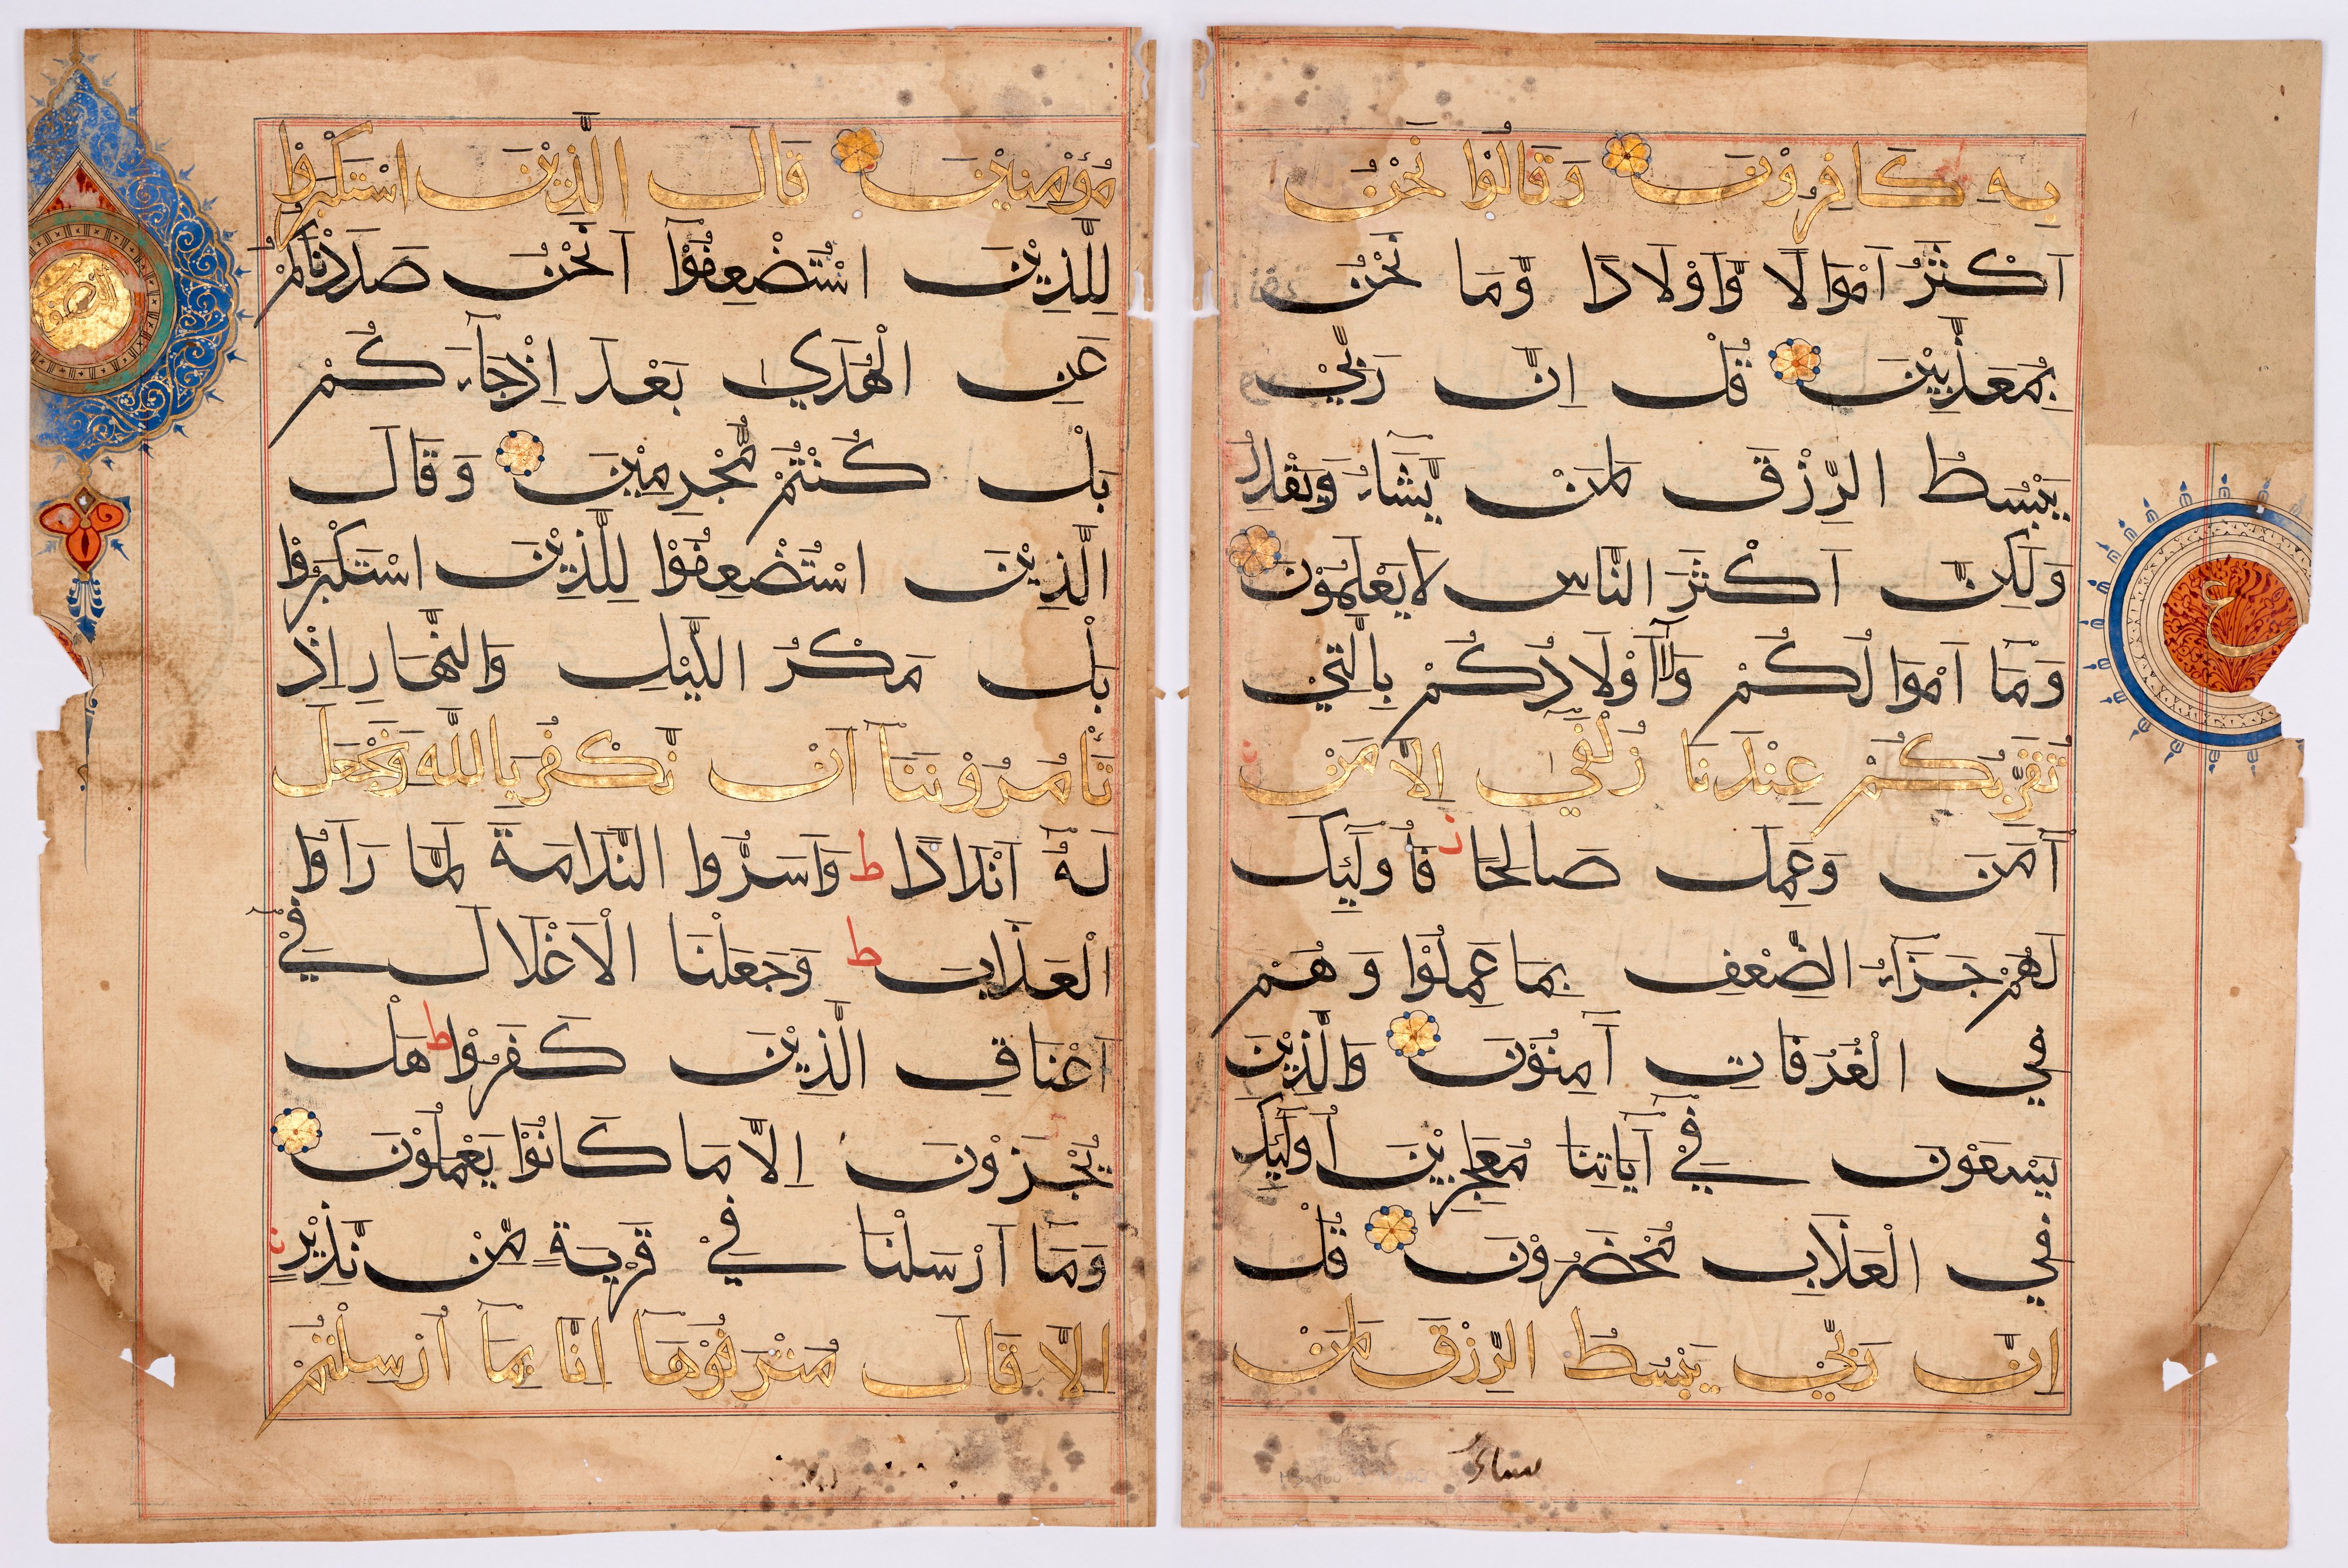 بِهِ كَافِرُوْنَ وَقَالُوْا نَحْنُ
اَكْثَرُ اَمْوَالًا وَّاَوْلَادًا وَّمَا نَحْنُ
بِمُعَذَّبِيْنَ قُلْ اِنَّ رَبِّيْ
يَبْسُطُ الرِّزْقَ لِمَنْ يَّشَاءُ وَيَقْدِرُ
وَلَكِنَّ اَكْثَرَ النَّاسِ لَا يَعْلَمُوْنَ
وَمَا اَمْوَالُكُمْ وَلَا اَوْلَادُكُمْ بِالَّتِيْ
تُقَرِّبُكُمْ عِنْدَنَا زُلْفَي اِلَّا مَنْ
آمَنَ وَعَمِلَ صَالِحًا فَاُولَئِكَ
لَهُمْ جَزَاءُ الضِّعْفِ بِمَا عَمِلُوْا وَهُمْ
فِي الْغُرُفَاتِ آمِنُوْنَ وَالَّذِيْنَ
يَسْعَوْنَ فِيْ آيَاتِنَا مُعَاجِزِيْنَ اُولَئِكَ
فِي الْعَذَابِ مُحْضَرُوْنَ قُلْ
اِنَّ رَبِّيْ يَبْسُطُ الرِّزْقَ لِمَنْ
ع
مُؤْمِنِيْنَ قَالَ الَّذِيْنَ اسْتَكْبَرُوْا
لِلَّذِيْنَ اسْتُضْعِفُوْا اَنَحْنُ صَدَدْنَاكُمْ
عَنِ الْهُدَي بَعْدَ اِذْ جَاءَكُمْ
بَلْ كُنْتُمْ مُّجْرِمِيْنَ وَقَالَ
الَّذِيْنَ اسْتُضْعِفُوْا لِلَّذِيْنَ اسْتَكْبَرُوْا
بَلْ مَكْرُ اللَّيْلِ وَالنَّهَارِ اِذْ
تَأْمُرُوْنَنَا اَنْ نَّكْفُرَ بِاللَّهِ وَنَجْعَلَ
لَهُ اَنْدَادًا ط وَاَسَرُّوا النَّدَامَةَ لَمَّا رَاَوُا
الْعَذَابَ ط وَجَعَلْنَا الْاَغْلَالَ فِيْ
اَعْنَاقِ الَّذِيْنَ كَفَرُوْا ط هَلْ
يُجْزَوْنَ اِلَّا مَا كَانُوْا يَعْمَلُوْنَ
وَمَا اَرْسَلْنَا فِيْ قَرْيَةٍ مِّنْ نَّذِيْرٍ
اِلَّا قَالَ مُتْرَفُوْهَا اِنَّا بِمَا اُرْسِلْتُمْ